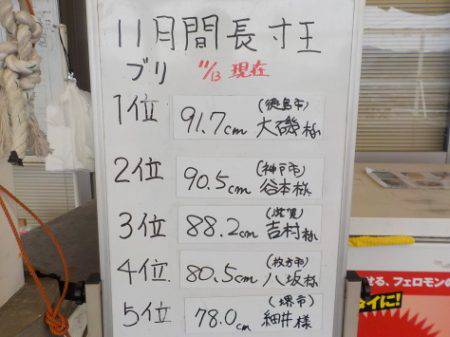 11月間長寸王
ブリ 11/13 現在
1位 91.7cm (徳島市) 大磯様
2位 90.5cm (神戸市) 谷本様
3位 88.2cm (滋賀) 吉村様
4位 80.5cm (枚方市) 八坂様
5位 78.0cm (堺市) 細井様
せる、フェロモンの
イに!